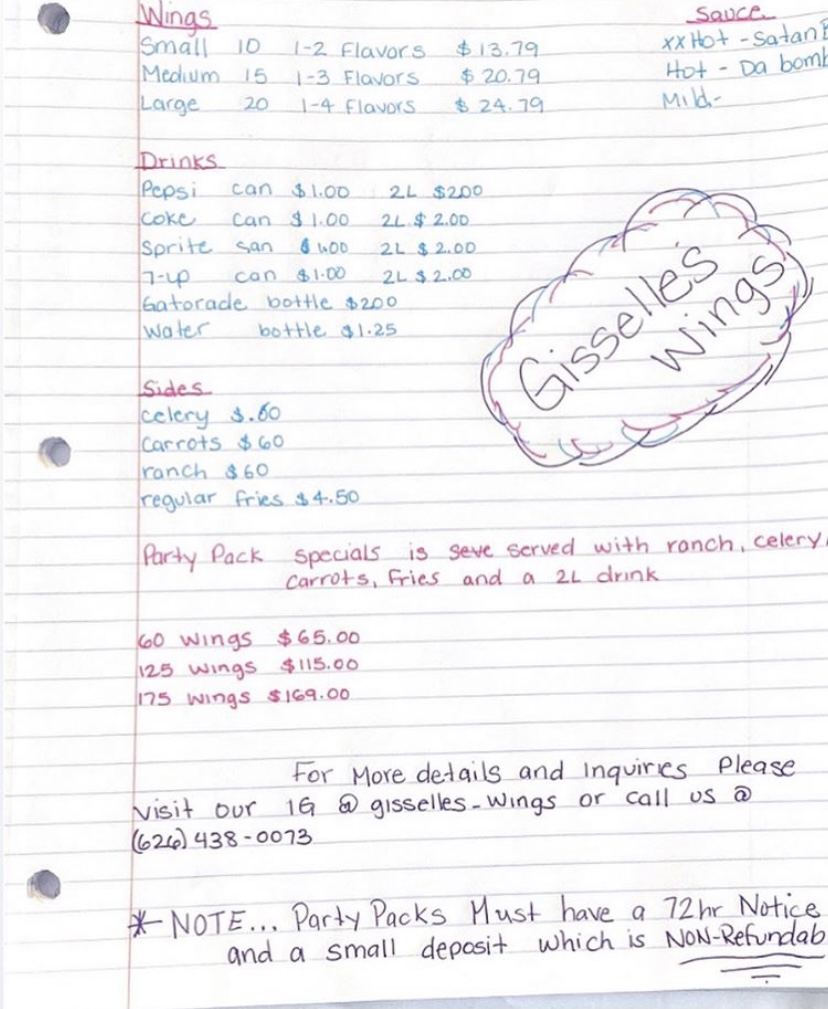 Wings
Small 10 1-2 Flavors $13.79
Medium 15 1-3 Flavors $20.79
Large 20 1-4 Flavors $24.79
Sauce
xxHot - Satan
Hot - Da bomb
Mild-
Drinks
Pepsi can $1.00 2L $200
Coke can $1.00 2L $2.00
Sprite san $1.00 2L $2.00
7-up can $1.00 2L $2.00
Gatorade bottle $200
Water bottle $1.25
Gisselle's
Wings
Sides
celery $.60
Carrots $60
ranch $60
regular fries $4.50
Party Pack specials is seve served with ranch, celery,
carrots, Fries and a 2L drink
60 wings $65.00
125 wings $115.00
175 wings $169.00
For More details and Inquiries Please
visit our IG @ gisselles-wings or call us @
(626) 438-0073
* NOTE... Party Packs Must have a 72hr Notice
and a small deposit which is NON-Refundab